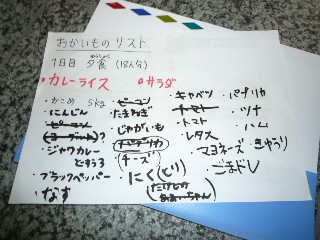 おかいものリスト
1日目 夕食 (18人分)
カレーライス
サラダ
・おこめ 5kg
・にんじん
・ピーマン
(ヨーグルト)?
・ジャワカレー
・ブラックペッパー
・なす
・ピーマン
・たまねぎ
・じゃがいも
・パプリカ
(チーズ)
・にく(とり)
・キャベツ
・トマト
・トマト
・レタス
・マヨネーズ
・ごまドレ
・パプリカ
・ツナ
・ハム
・きゅうり